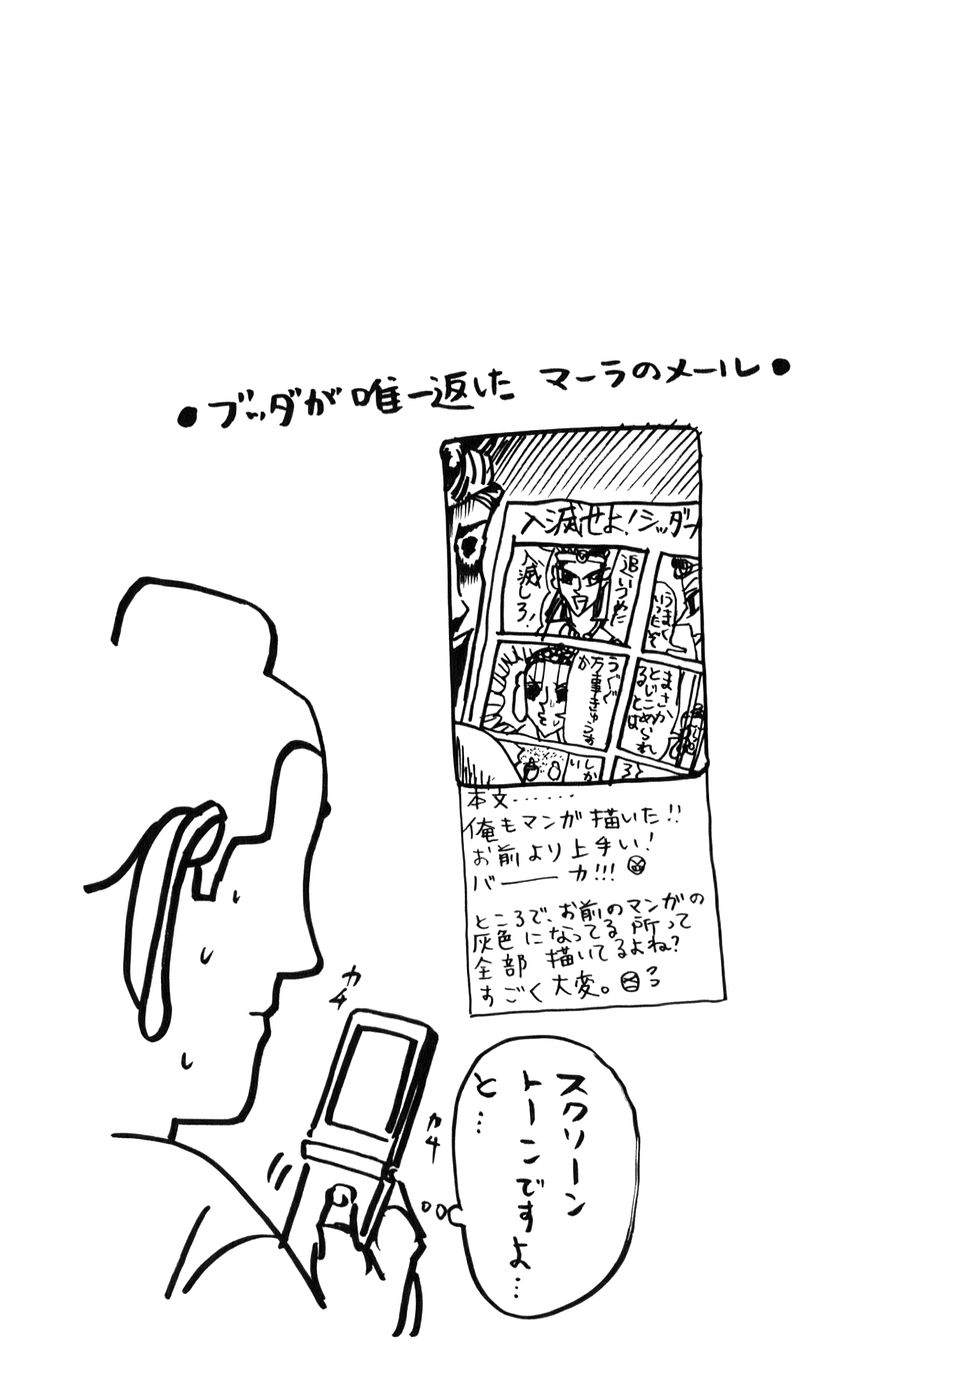 ●ブッダが唯一返した マーラのメール●
入滅せよ!シッダー
追いつめた
入滅しろ!
うまく
いったぞ
うぐぐ
万事きゅうす
か
まさか
とじこめられ
るとは
しか
い
本文……
俺もマンガ描いた!!
お前より上手い!
バーーーカ!!!
ところで、お前のマンガの
灰色になってる所って
全部 描いてるよね?
すごく大変。
カチ
カチ
スクリーン
トーンですよ…
と…